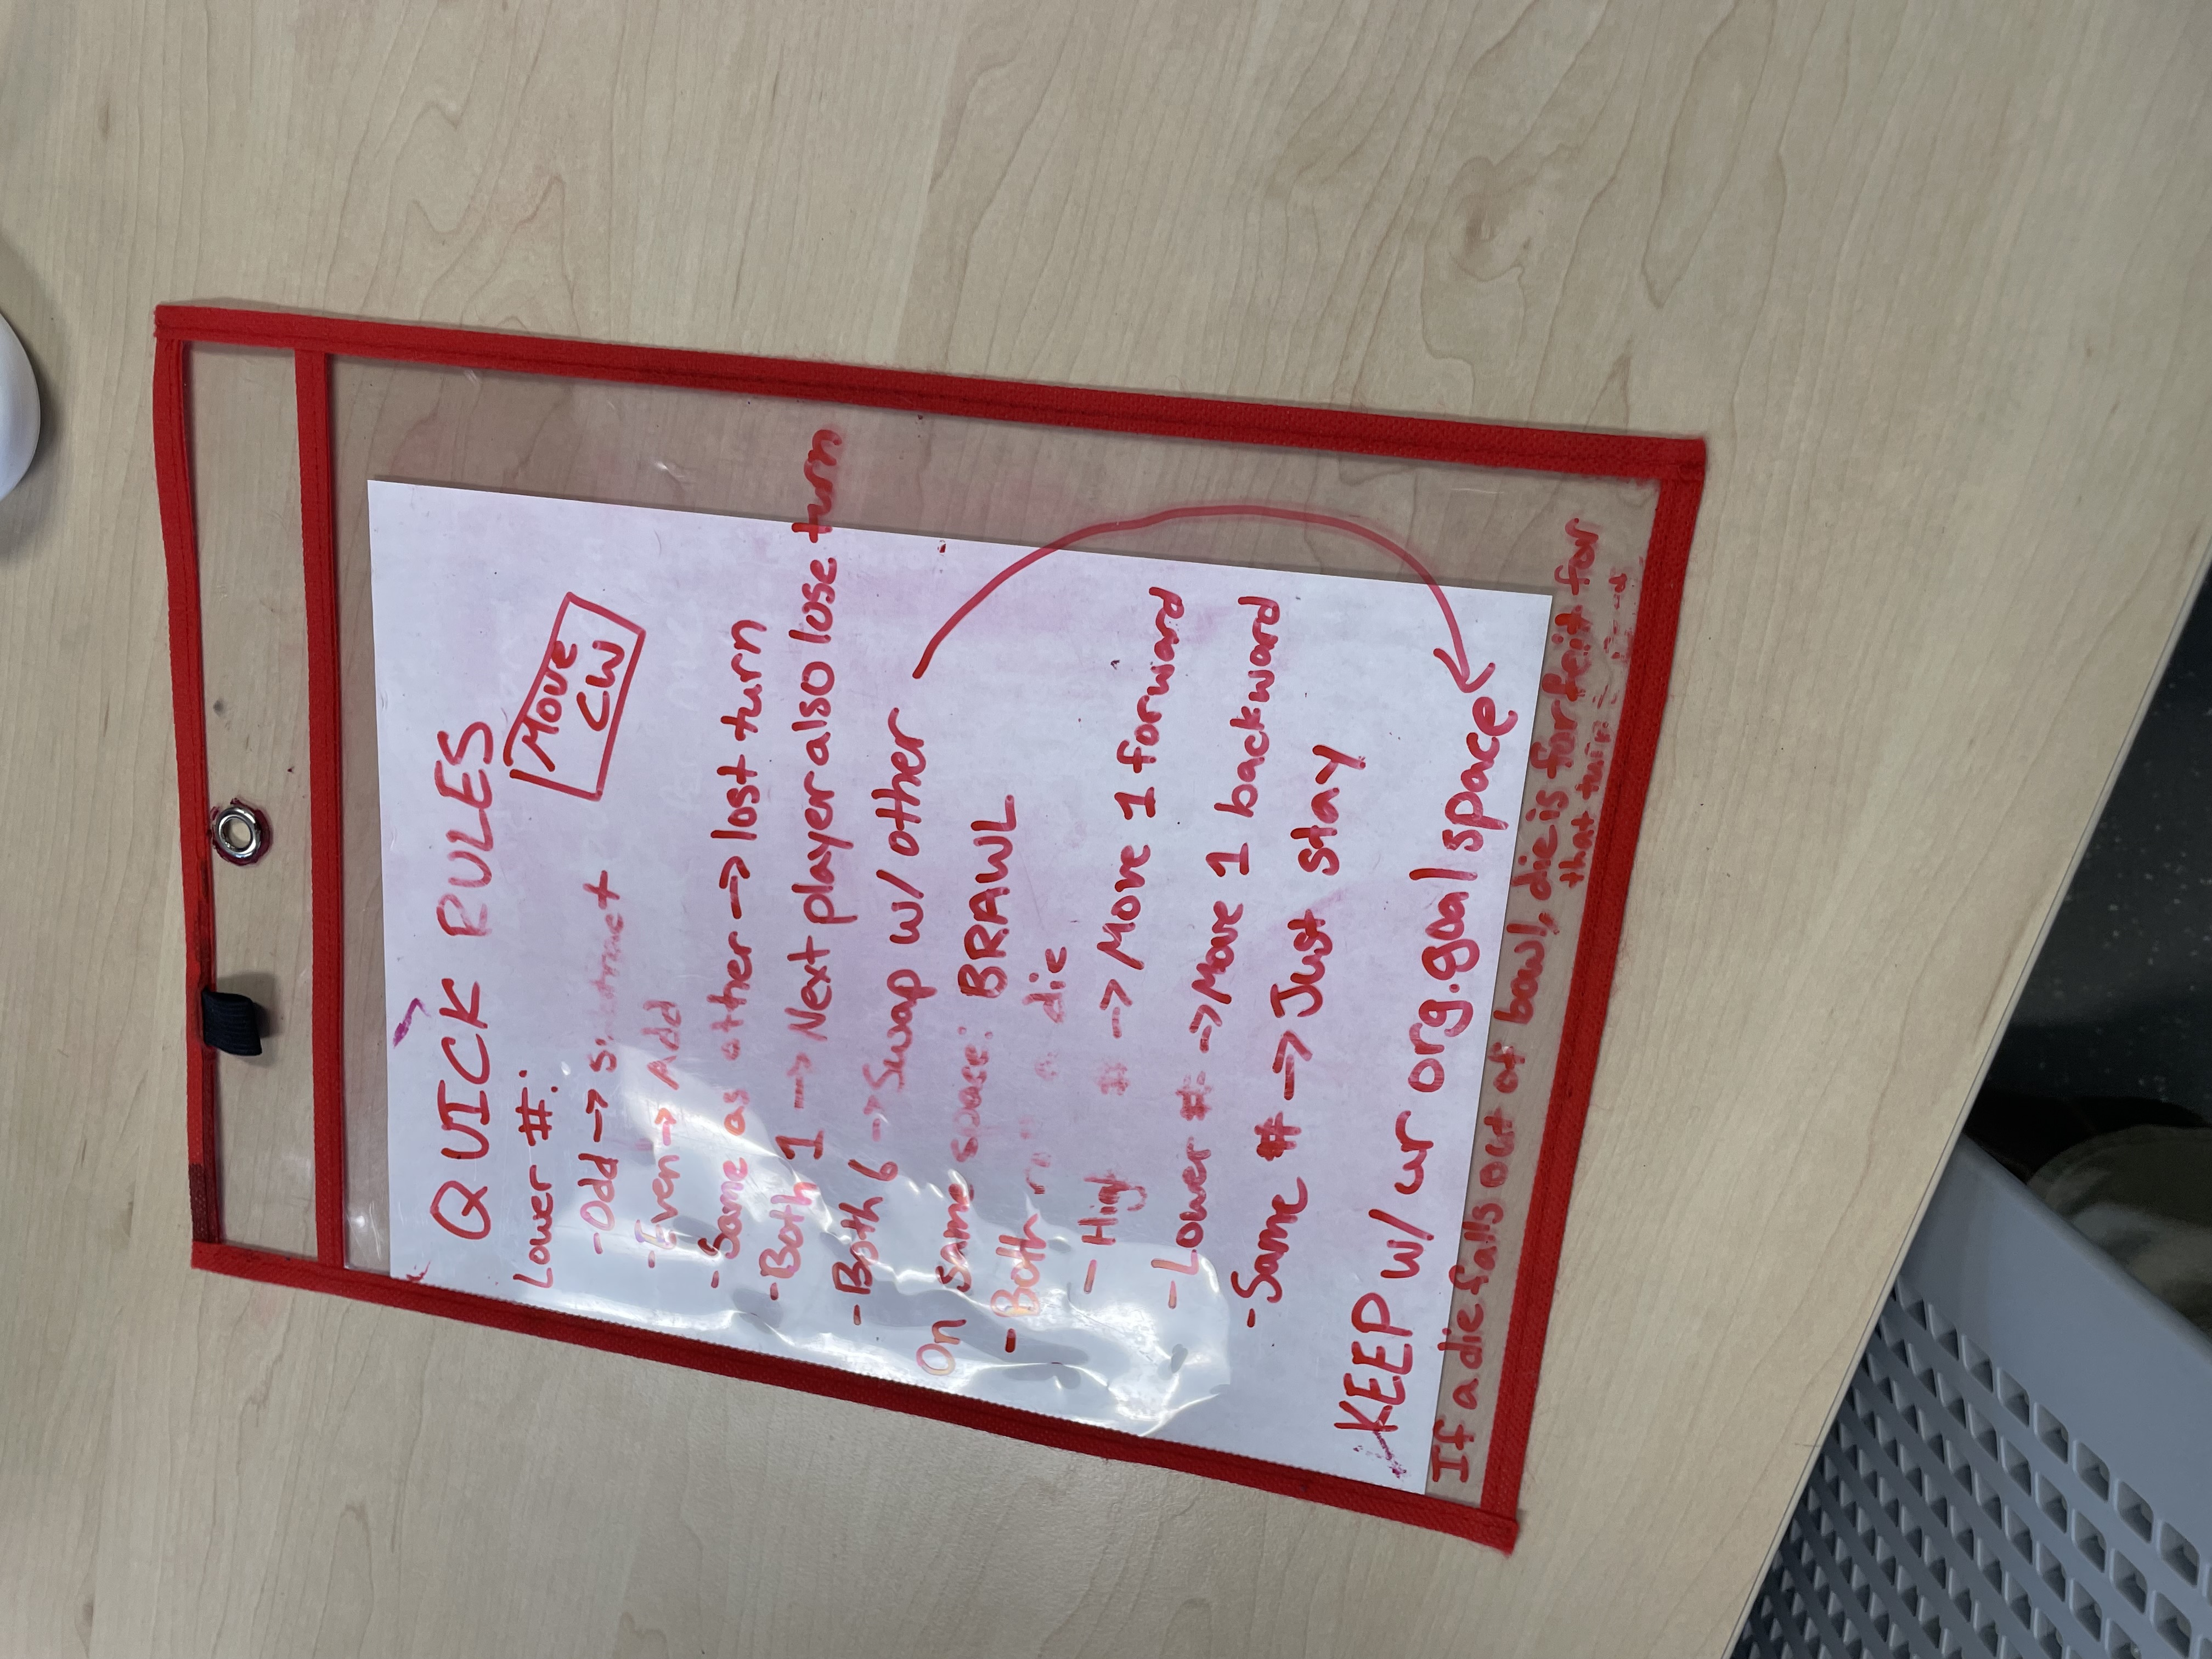 QUICK RULES
Lower #:
Move
CW
-Odd → subtract
-Even → Add
-Same as other → lost turn
-Both 1 → Next player also lose turn
-Both 6 → Swap w/ other
On same space: BRAWL
-Both a die
-High # → Move 1 forward
-Lower # → Move 1 backward
-Same # → Just stay
KEEP w/ ur org.goal space
If a die falls out of bowl, die is forfeit for
that turn